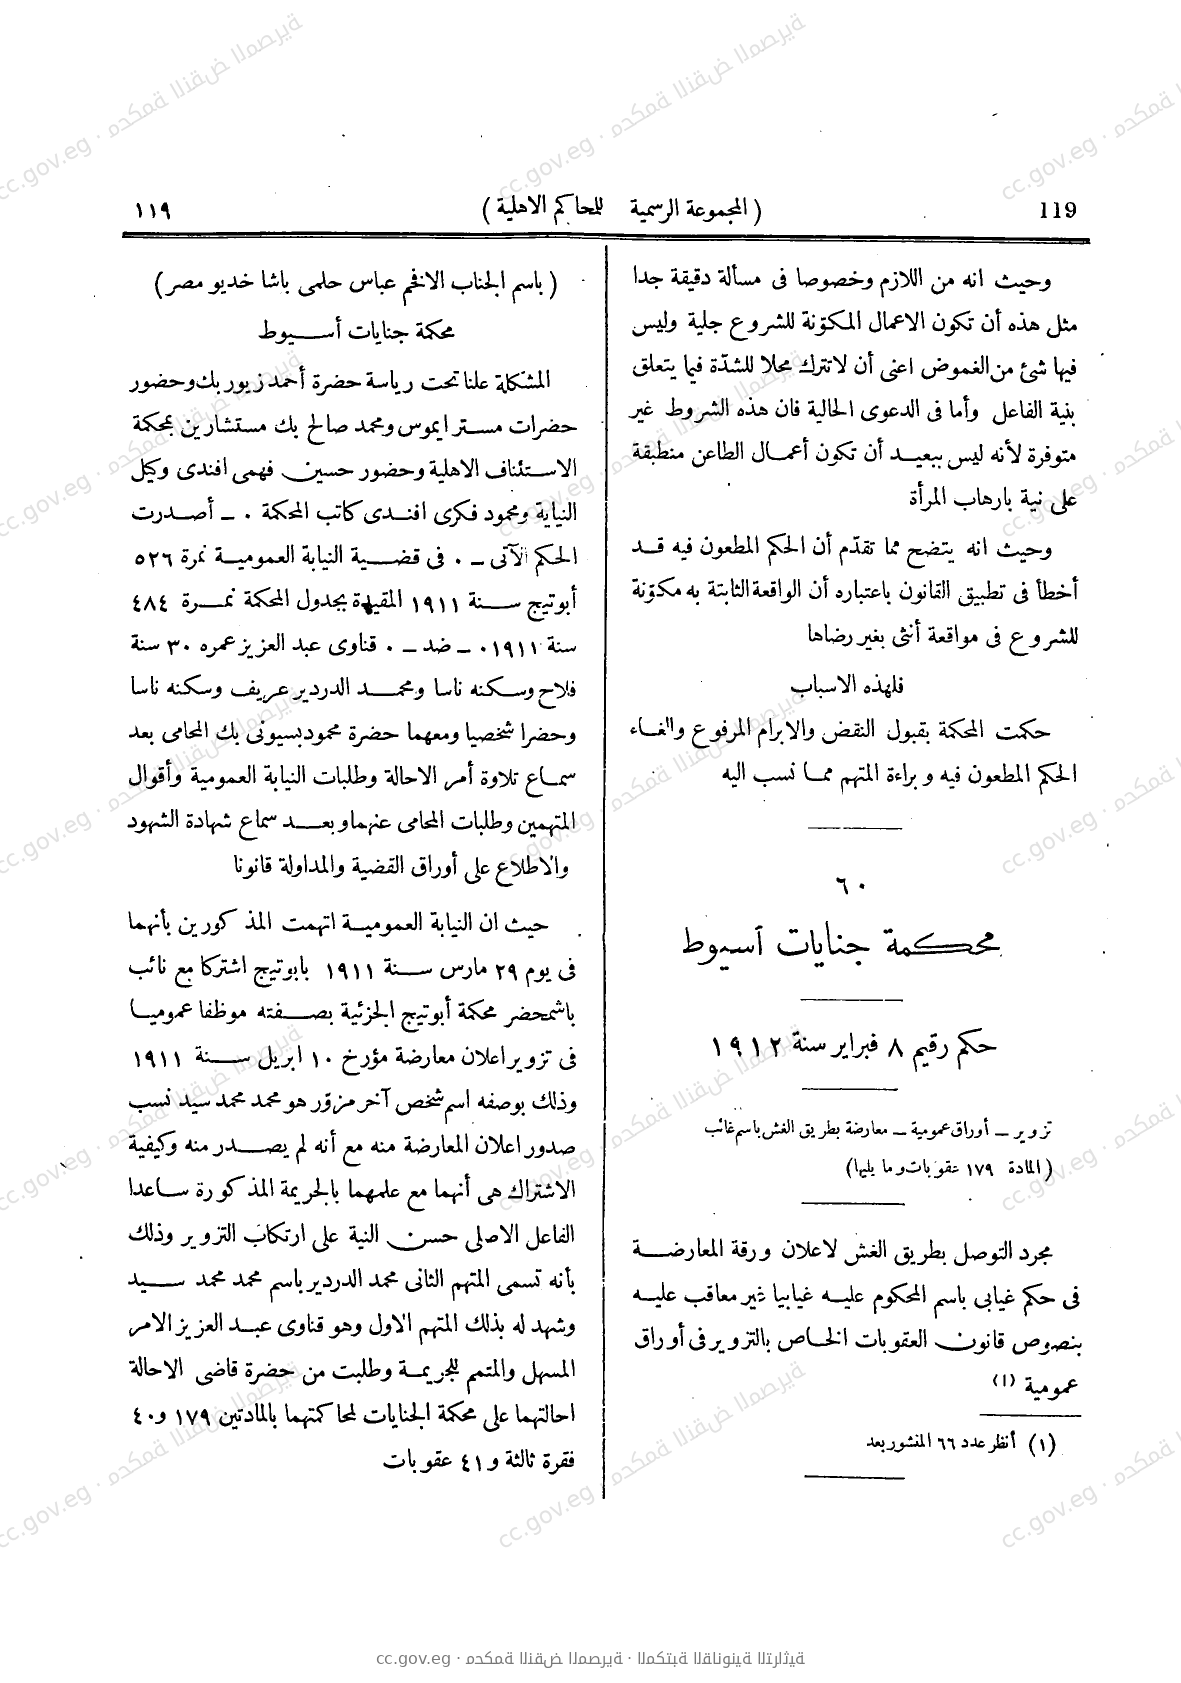 119
( المجموعة الرسمية للمحاكم الاهلية )
١١٩
وحيث انه من اللازم وخصوصا فى مسألة دقيقة جدا
مثل هذه أن تكون الاعمال المكوّنة للشروع جلية وليس
فيها شئ من الغموض اعنى أن لاتترك محلا للشدّة فيما يتعلق
بنية الفاعل وأما فى الدعوى الحالية فان هذه الشروط غير
متوفرة لأنه ليس ببعيد أن تكون أعمال الطاعن منطبقة
على نية بارهاب المرأة
وحيث انه يتضح مما تقدّم أن الحكم المطعون فيه قد
أخطأ فى تطبيق القانون باعتباره أن الواقعة الثابتة به مكوّنة
للشروع فى مواقعة أنثى بغير رضاها
فلهذه الاسباب
حكمت المحكمة بقبول النقض والابرام المرفوع والغاء
الحكم المطعون فيه وبراءة المتهم مما نسب اليه
٦٠
محكمة جنايات أسيوط
حكم رقيم ٨ فبراير سنة ١٩١٢
تزوير ــ أوراق عمومية ــ معارضة بطريق الغش باسم غائب
(المادة ١٧٩ عقوبات وما يليها)
مجرد التوصل بطريق الغش لاعلان ورقة المعارضة
فى حكم غيابى باسم المحكوم عليه غيابيا غير معاقب عليه
بنصوص قانون العقوبات الخاص بالتزوير فى أوراق
عمومية (١)
(١) أنظر عدد ٦٦ المنشور بعد
( باسم الجناب الافخم عباس حلمى باشا خديو مصر )
محكمة جنايات أسيوط
المشكلة علنا تحت رياسة حضرة أحمد زيور بك وحضور
حضرات مستر ايموس ومحمد صالح بك مستشارين بمحكمة
الاستئناف الاهلية وحضور حسين فهمى افندى وكيل
النيابة ومحمود فكرى افندى كاتب المحكمة ٠ ــ أصدرت
الحكم الآتى ــ ٠ فى قضية النيابة العمومية نمرة ٥٢٦
أبوتيج سنة ١٩١١ المقيدة بجدول المحكمة نمرة ٤٨٤
سنة ١٩١١ ٠ ــ ضد ــ ٠ قناوى عبد العزيز عمره ٣٠ سنة
فلاح وسكنه ناسا ومحمد الدردير عريف وسكنه ناسا
وحضرا شخصيا ومعهما حضرة محمود بسيونى بك المحامى بعد
سماع تلاوة أمر الاحالة وطلبات النيابة العمومية وأقوال
المتهمين وطلبات المحامى عنهما وبعد سماع شهادة الشهود
والاطلاع على أوراق القضية والمداولة قانونا
حيث ان النيابة العمومية اتهمت المذكورين بأنهما
فى يوم ٢٩ مارس سنة ١٩١١ بابوتيج اشتركا مع نائب
باشمحضر محكمة أبوتيج الجزئية بصفته موظفا عموميا
فى تزوير اعلان معارضة مؤرخ ١٠ ابريل سنة ١٩١١
وذلك بوصفه اسم شخص آخر مزوّر هو محمد محمد سيد نسب
صدور اعلان المعارضة منه مع أنه لم يصدر منه وكيفية
الاشتراك هى أنهما مع علمهما بالجريمة المذكورة ساعدا
الفاعل الاصلى حسن النية على ارتكاب التزوير وذلك
بأنه تسمى المتهم الثانى محمد الدردير باسم محمد محمد سيد
وشهد له بذلك المتهم الاول وهو قناوى عبد العزيز الامر
المسهل والمتمم للجريمة وطلبت من حضرة قاضى الاحالة
احالتهما على محكمة الجنايات لمحاكمتهما بالمادتين ١٧٩ و٤٠
فقرة ثالثة و٤١ عقوبات
cc.gov.eg · محكمة النقض المصرية · المكتبة القانونية التراثية